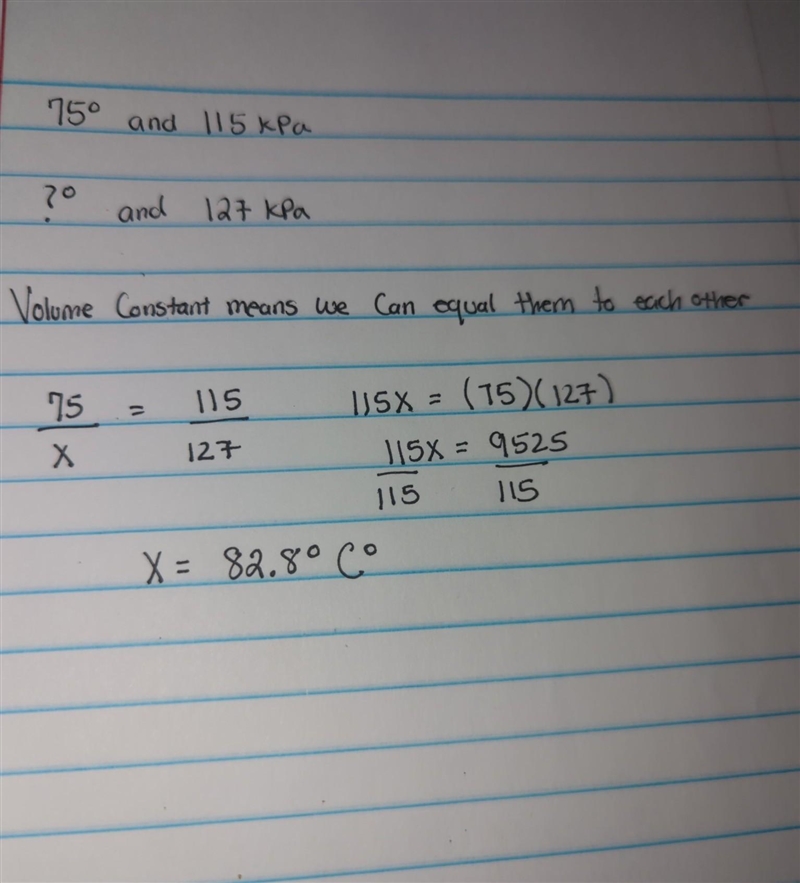 75° and 115 kPa
?° and 127 kPa
Volume Constant means we Can equal them to each other
75/X = 115/127
115X = (75)(127)
115X/115 = 9525/115
X = 82.8° C°